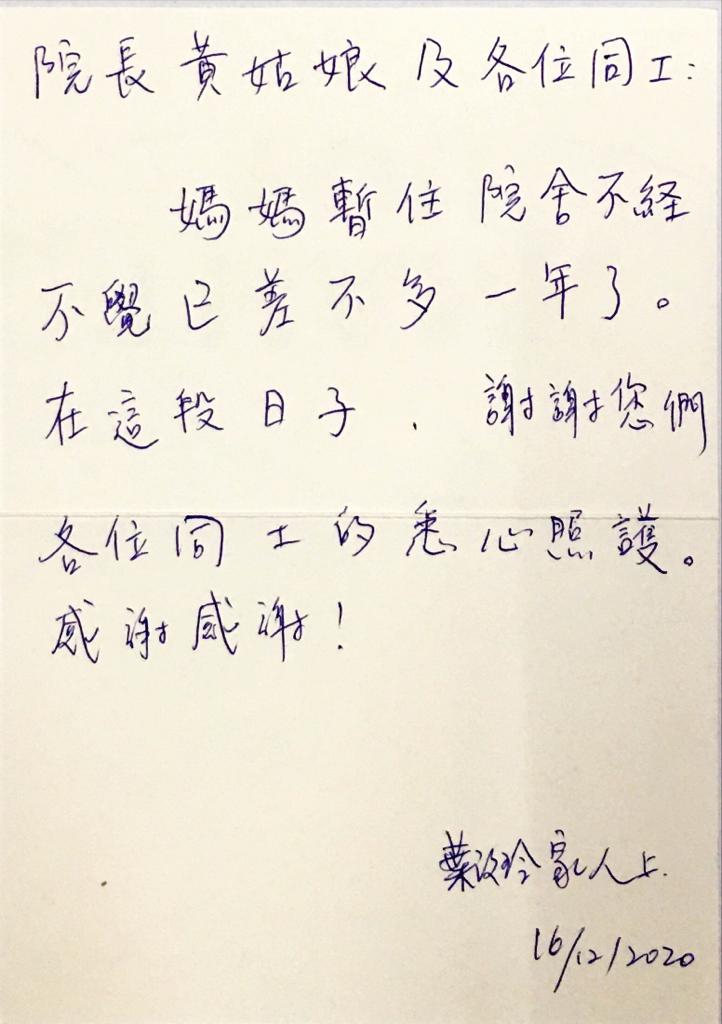 院長黃姑娘及各位同工:
媽媽暫住院舍不経
不覺已差不多一年了。
在這段日子,謝謝您們
各位同工的悉心照護。
感謝感謝!
葉玲家人上
16/12/2020